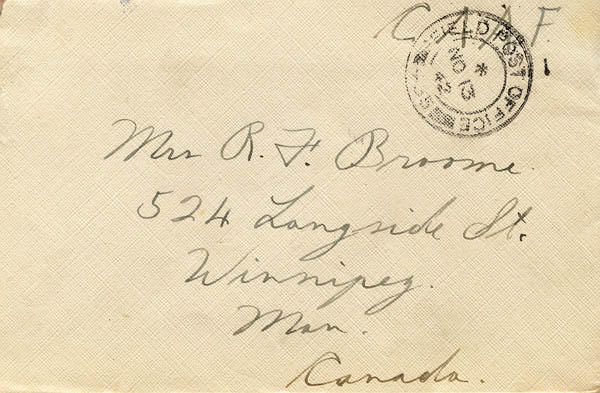 C.A.A.F.
FIELD POST OFFICE
NO 13
43
Mrs R. F. Broome.
524 Langside St.
Winnipeg.
Man.
Canada.